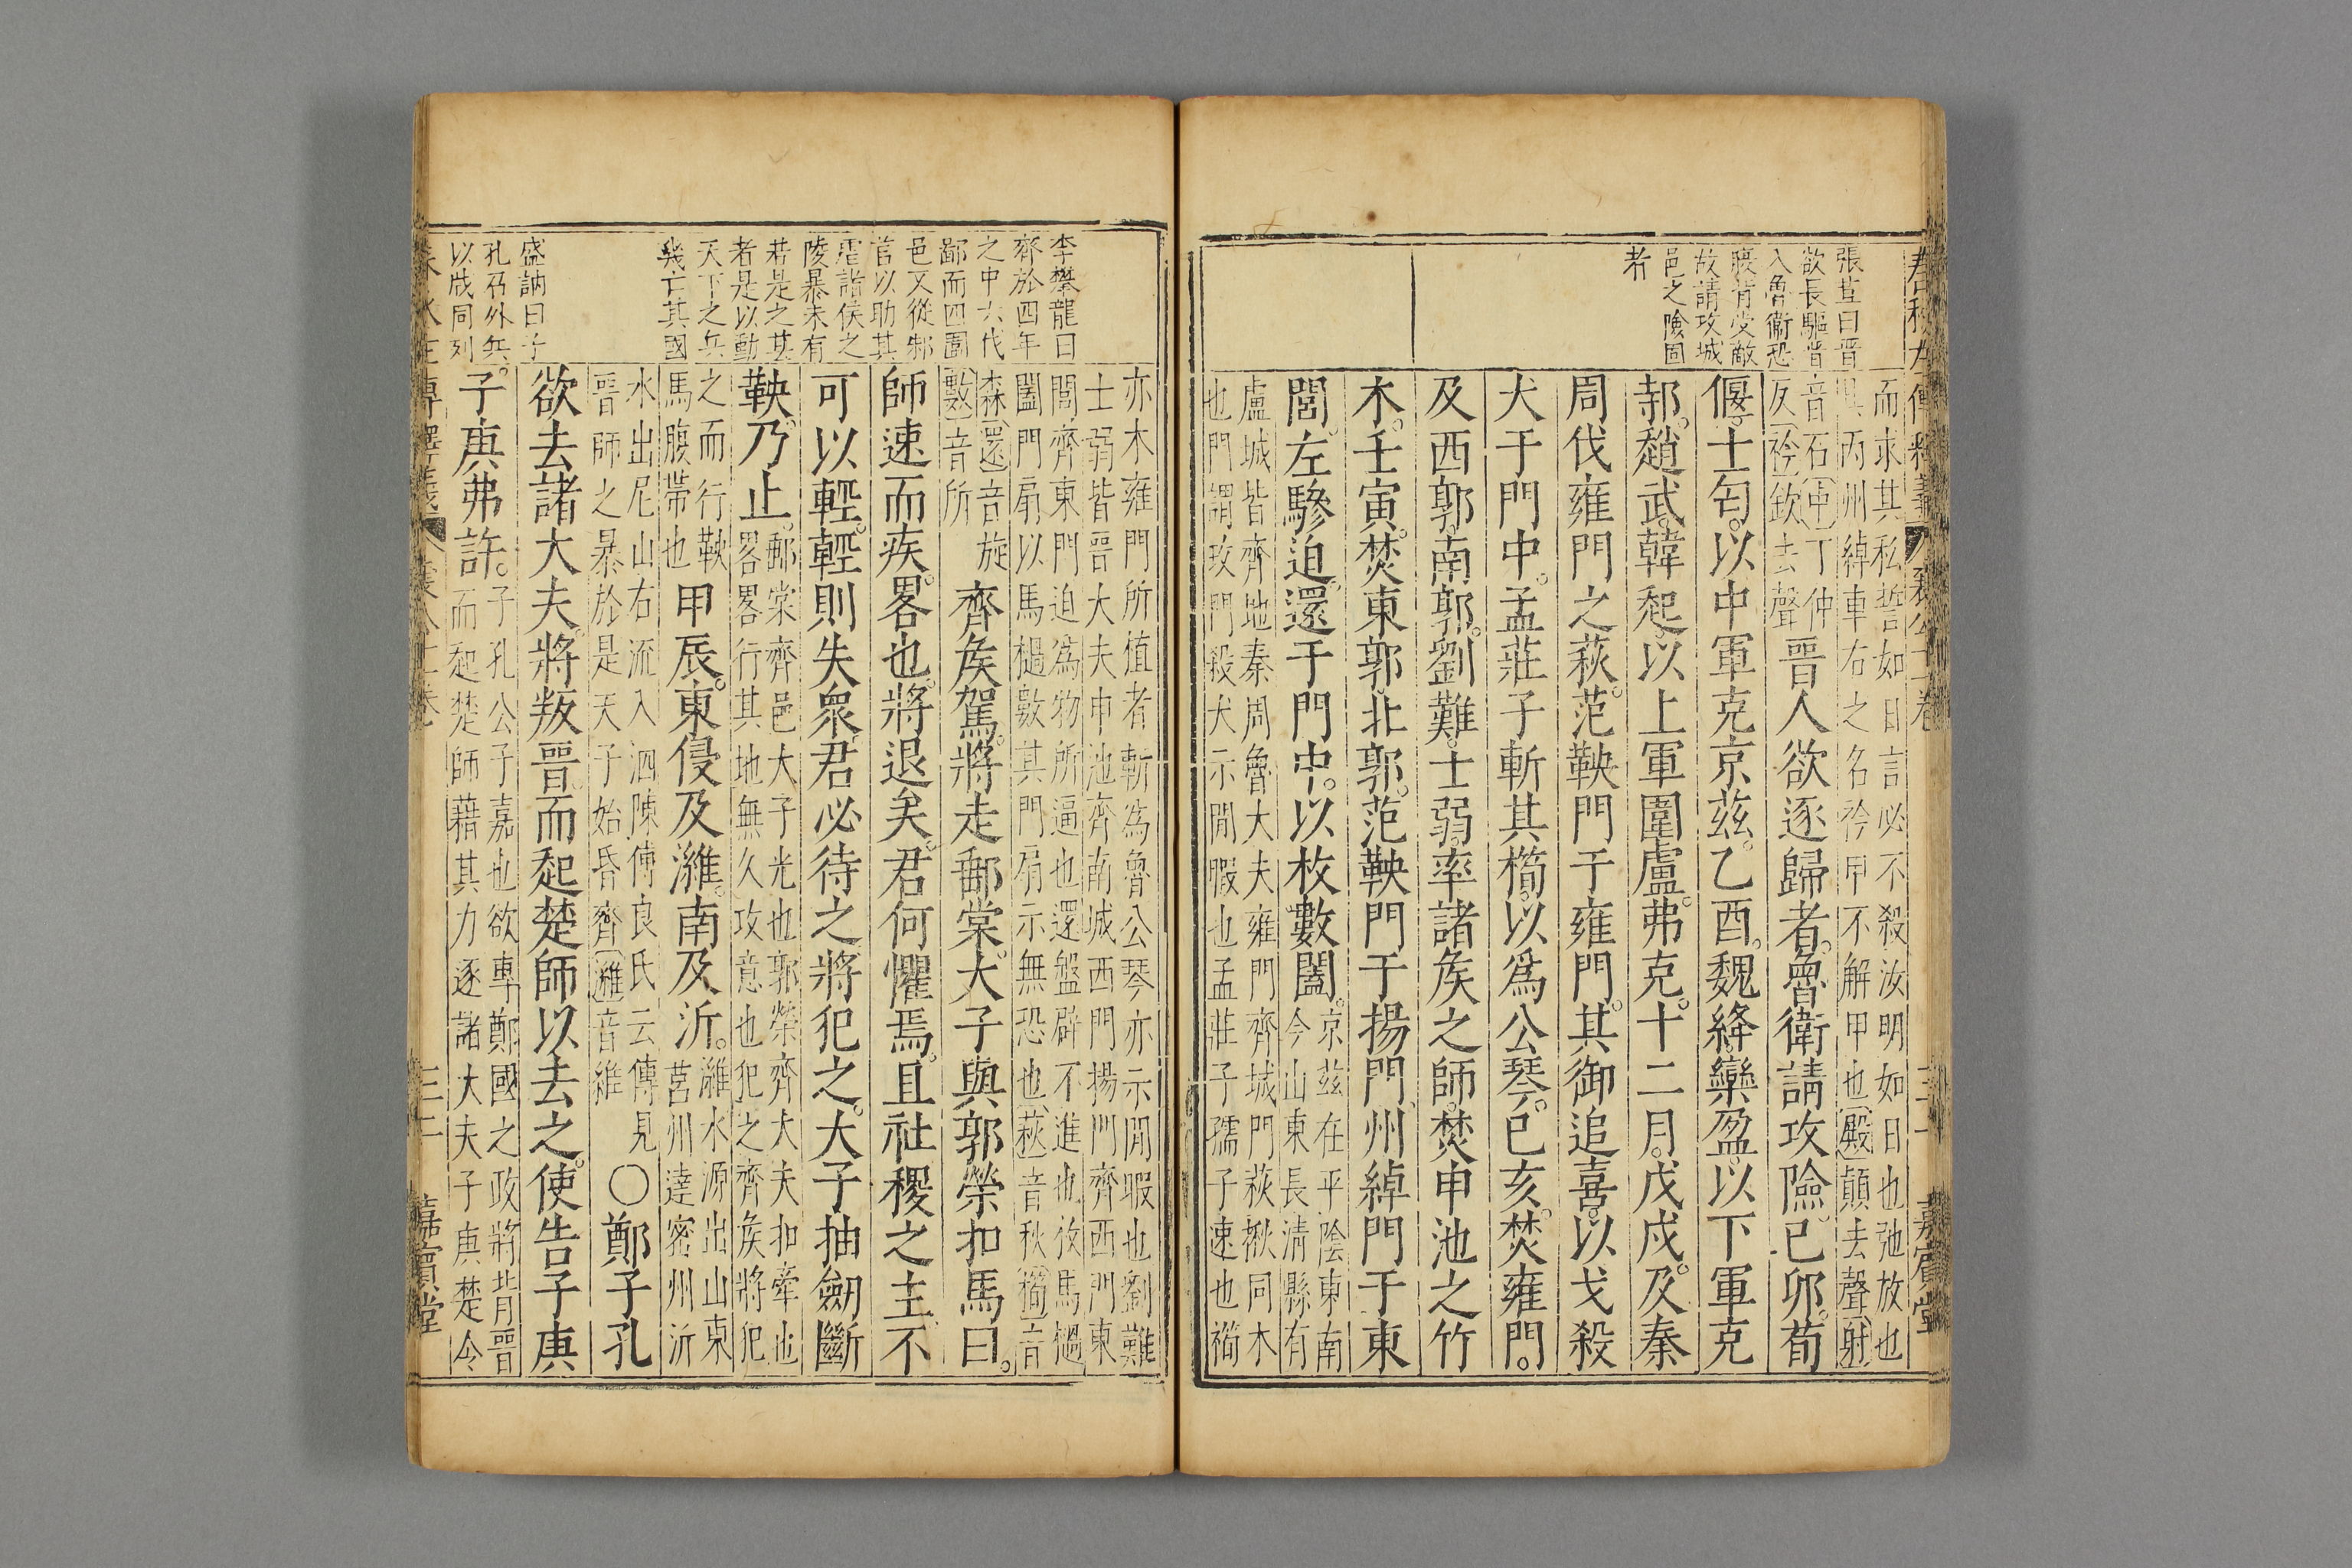 張萱曰晉
欲長驅晉
入魯衞恐
寢背受敵
故請攻城
邑之險固
者
而求其私誓如日言必不殺汝明如日也弛放也
丙州綽車右之名衿甲不解甲也殿顛去聲射
音石中丁仲
反衿欽去聲
晉人欲逐歸者魯衛請攻險己卯荀
偃士匄以中軍克京茲乙酉魏絳欒盈以下軍克
邿趙武韓起以上軍圍盧弗克十二月戊戌及秦
周伐雍門之萩范鞅門于雍門其御追喜以戈殺
犬于門中孟莊子斬其橁以爲公琴己亥焚雍門
及西郭南郭劉難士弱率諸矦之師焚申池之竹
木壬寅焚東郭北郭范鞅門于揚門州綽門于東
閭左驂迫還于門中以枚數闔
京茲在平陰東南
今山東長淸縣有
盧城皆齊地秦周魯大夫雍門齊城門萩楸同木
也門謂攻門殺犬示閒暇也孟莊子孺子速也橁
李攀龍曰
齊於四年
之中六代
鄙而四圍
邑又從邾
莒以助其
虐諸侯之
陵暴未有
若是之甚
者是以動
天下之兵
幾亡其國
盛訥曰子
孔召外兵
以戕同列
亦木雍門所值者斬為魯公琴亦示閒暇也劉難
士弱皆晉大夫申池齊南城西門揚門齊西門東
閭齊東門迫為物所逼也還盤辟不進也枚馬檛
闔門扇以馬檛數其門扇示無恐也萩音秋橁音
森還音旋
數音所
齊矦駕將走郵棠大子與郭榮扣馬曰
師速而疾畧也將退矣君何懼焉且社稷之主不
可以輕輕則失衆君必待之將犯之大子抽劒斷
鞅乃止
郵棠齊邑大子光也郭榮齊大夫扣牽也
畧畧行其地無久攻意也犯之齊矦將犯
之而行鞅
馬腹帶也
甲辰東侵及濰南及沂
濰水源出山東
莒州達密州沂
水出尼山右流入泗陳傅良氏云傳見
晉師之暴於是天子始昏齊濰音維
〇鄭子孔
欲去諸大夫將叛晉而起楚師以去之使告子庚
子庚弗許
子孔公子嘉也欲專鄭國之政將背晉
而起楚師藉其力逐諸大夫子庚楚令
嘉賓堂